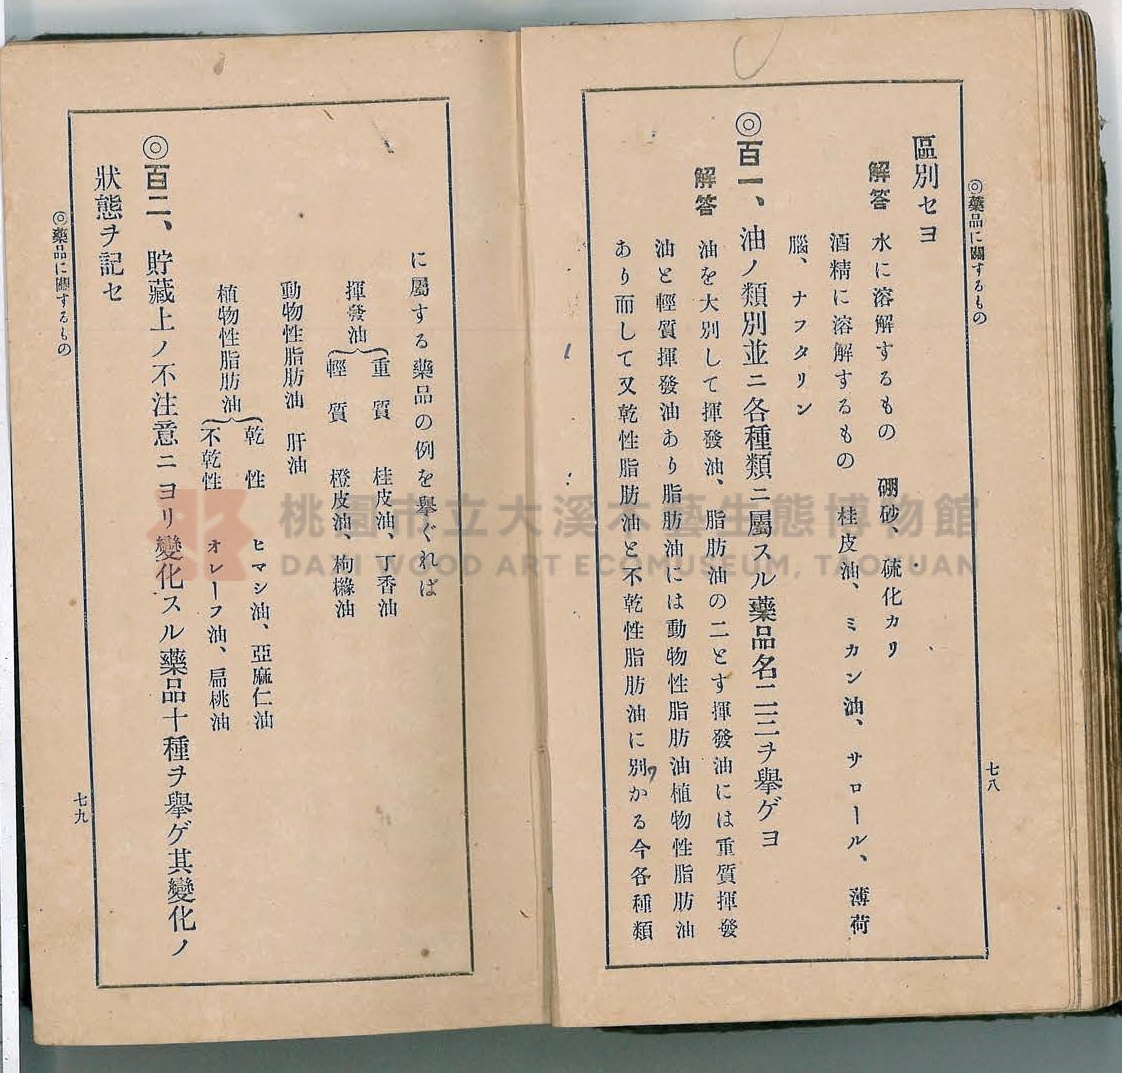 ◎藥品に關するもの
七八
區別セヨ
解答 水に溶解するもの 硼砂、硫化カリ
酒精に溶解するもの 桂皮油、ミカン油、サロール、薄荷
腦、ナフタリン
◎百一、油ノ類別並ニ各種類ニ屬スル藥品名二三ヲ擧ゲヨ
解答 油を大別して揮發油、脂肪油の二とす揮發油には重質揮發
油と輕質揮發油あり脂肪油には動物性脂肪油植物性脂肪油
あり而して又乾性脂肪油と不乾性脂肪油に別かる今各種類
に屬する藥品の例を擧ぐれば
揮發油
重質 桂皮油、丁香油
輕質 橙皮油、枸櫞油
動物性脂肪油 肝油
植物性脂肪油
乾性 ヒマシ油、亞麻仁油
不乾性 オレーフ油、扁桃油
◎百二、貯藏上ノ不注意ニヨリ變化スル藥品十種ヲ擧ゲ其變化ノ
狀態ヲ記セ
◎藥品に關するもの
七九
桃園市立大溪木藝生態博物館
DAXI WOOD ART ECOMUSEUM, TAOYUAN